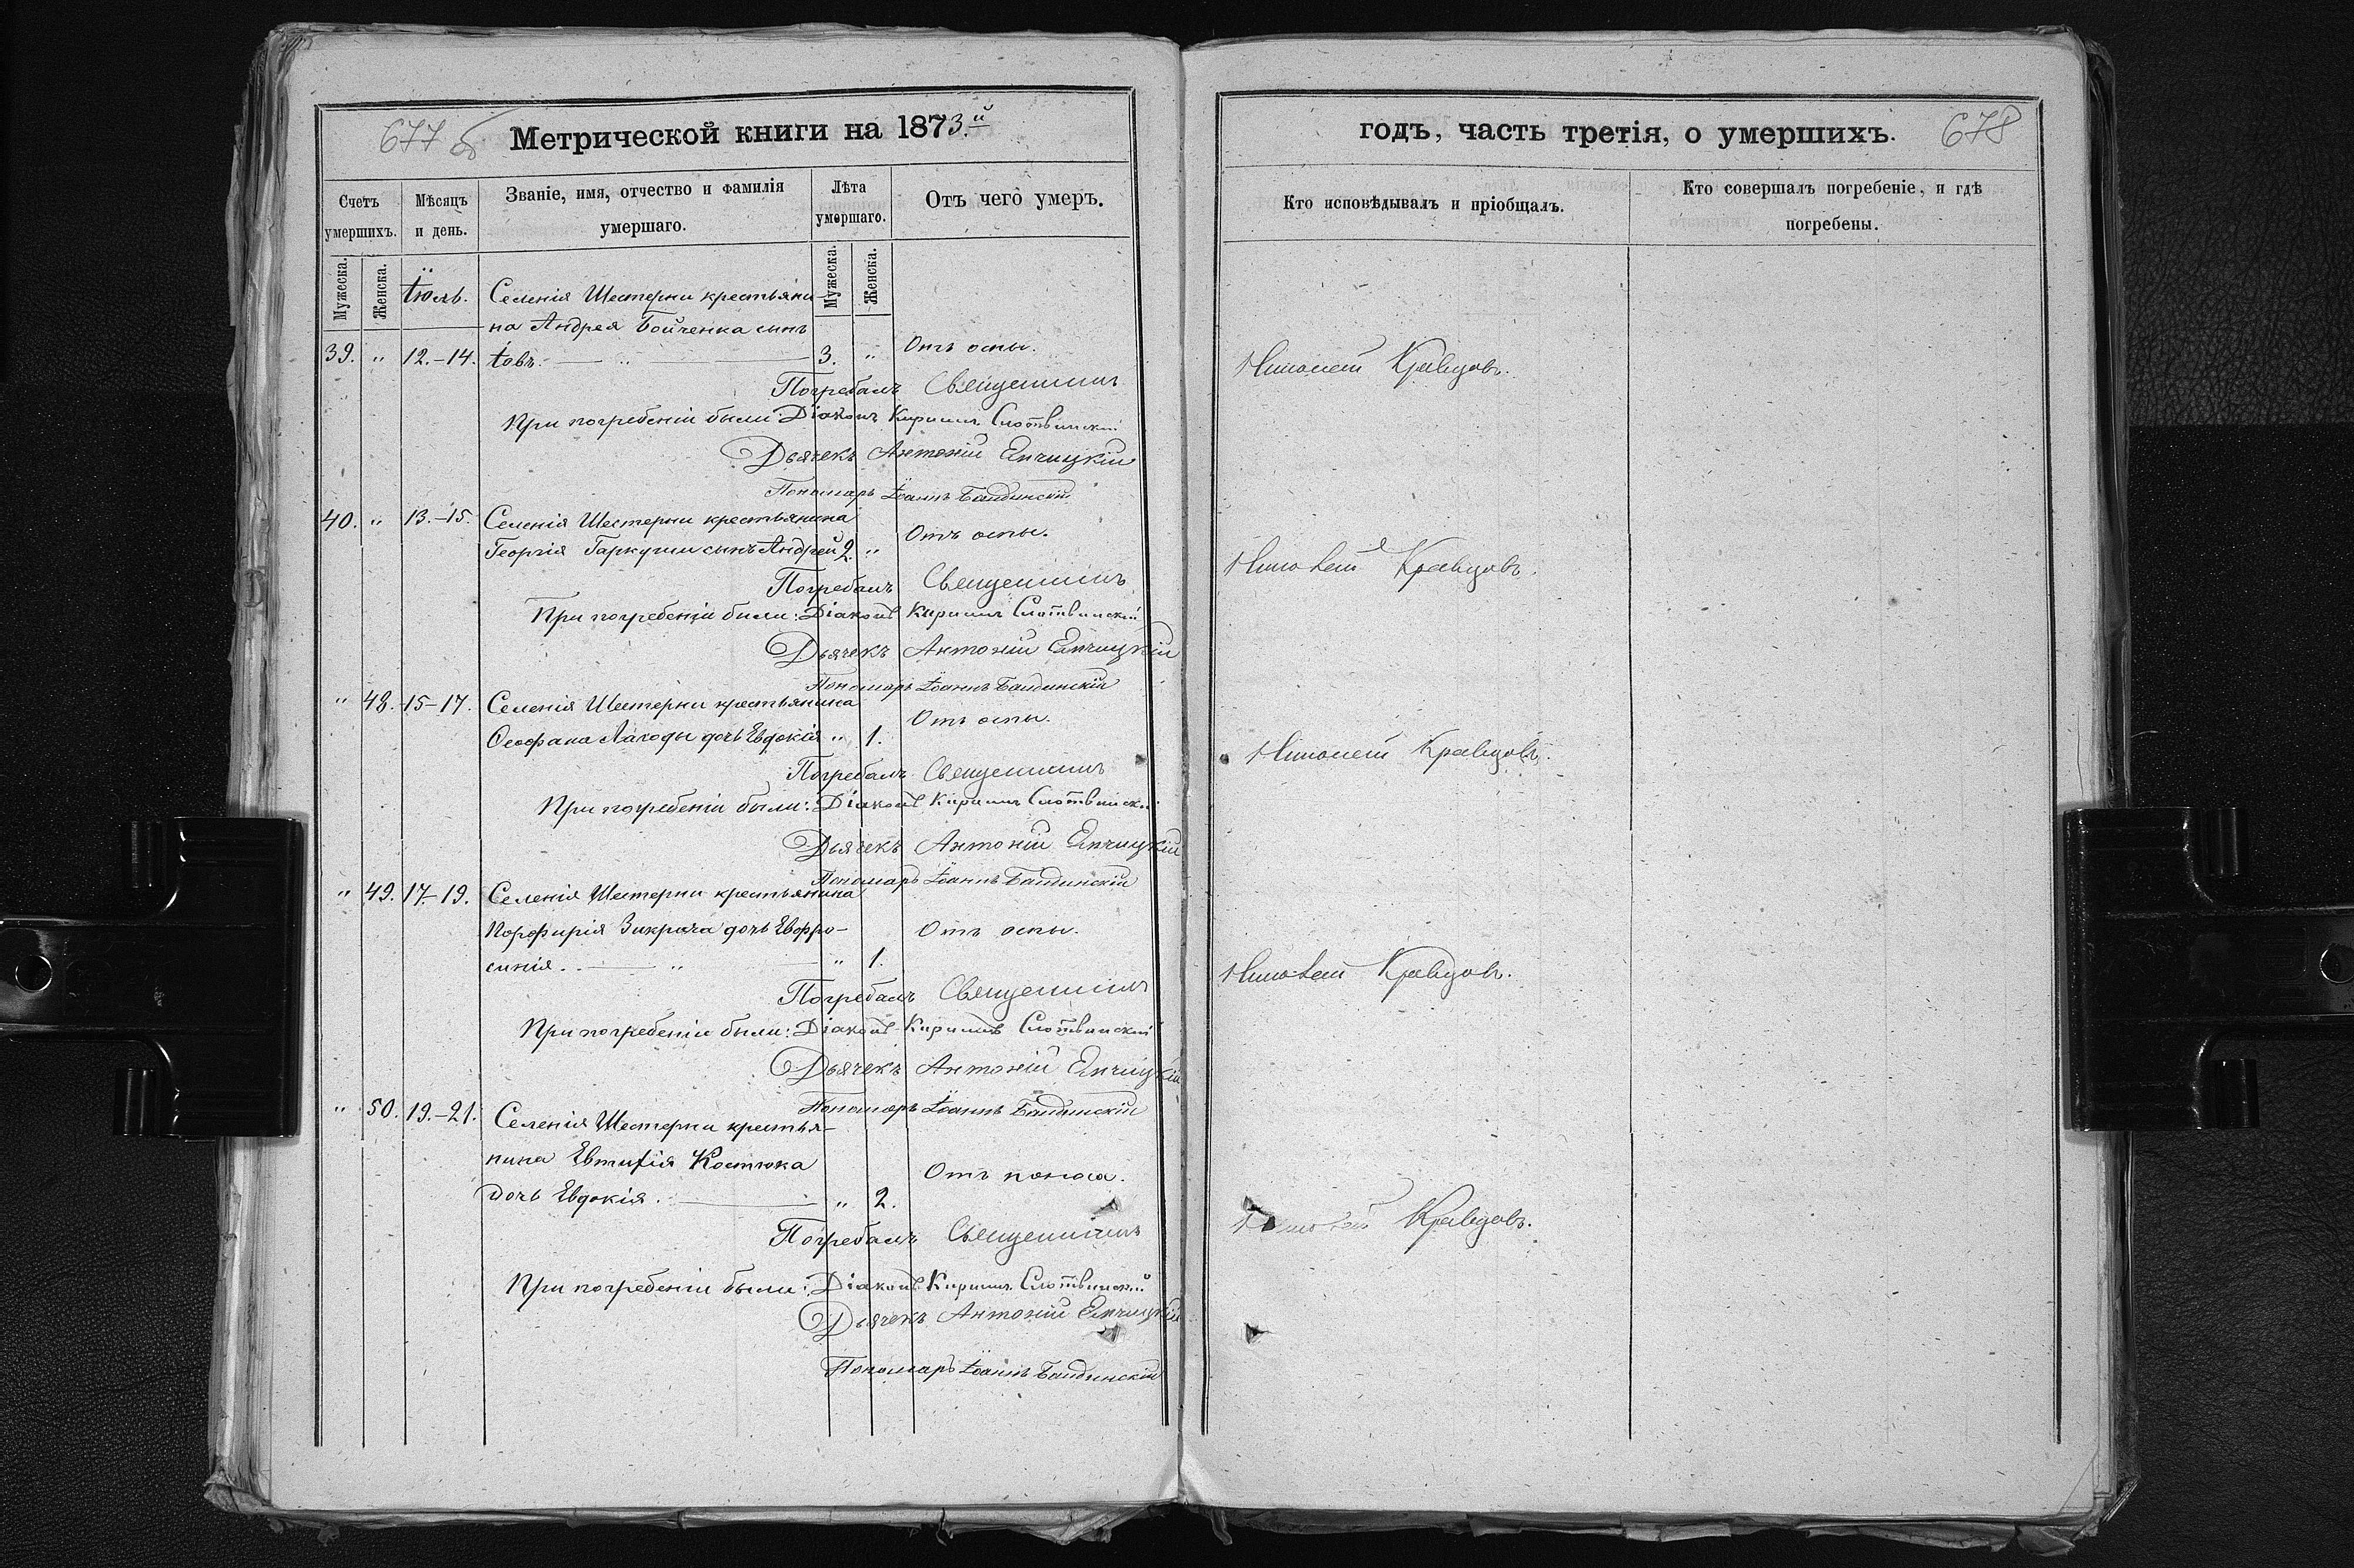 677 об
Метрической книги на 1873й
Счетъ умершихъ.
Мѣсяцъ и день.
Званіе, имя, отчество и фамилія умершаго.
Лѣта умершаго.
Отъ чего умеръ.
Мужеска.
Женска.
Мужеска.
Женска.
Іюль.
Селенія Шестерни крестьяни-
на Андрея Бойченка сынъ
39. " 12.-14. Іовъ. " 3. " Отъ оспы.
Погребалъ Священникъ
При погребеніи были: Діаконъ Кириллъ Слотвинскій
Дьячекъ Антоній Елчицкій
Пономарь Іоаннъ
40. " 13.-15. Селенія Шестерни крестьянина
Георгія Гаркуши сынъ Андрей 2. " Отъ оспы.
Погребалъ Священникъ
При погребеніи были: Діаконъ Кириллъ Слотвинскій
Дьячекъ Антоній Елчицкій
Пономарь Іоаннъ
" 48. 15-17. Селенія Шестерни крестьянина
Ѳеофана Лагоды дочь Евдокія " 1. Отъ оспы.
Погребалъ Священникъ
При погребеніи были: Діаконъ Кириллъ Слотвинскій
Дьячекъ Антоній Елчицкій
Пономарь Іоаннъ
" 49. 17-19. Селенія Шестерни крестьянина
Порфирія дочь Евфро- Отъ оспы.
синія. " " 1.
Погребалъ Священникъ
При погребеніи были: Діаконъ Кириллъ Слотвинскій
Дьячекъ Антоній Елчицкій
Пономарь Іоаннъ
" 50. 19.-21. Селенія Шестерни крестья-
нина Евтихія Костюка Отъ поноса.
дочь Евдокія. " 2.
Погребалъ Священникъ
При погребеніи были: Діаконъ Кириллъ Слотвинскій
Дьячекъ Антоній Елчицкій
Пономарь Іоаннъ
годъ, часть третія, о умершихъ. 678
Кто исповѣдывалъ и пріобщалъ.
Кто совершалъ погребеніе, и гдѣ погребены.
Кравцовъ.
Кравцовъ.
Кравцовъ.
Кравцовъ.
Кравцовъ.